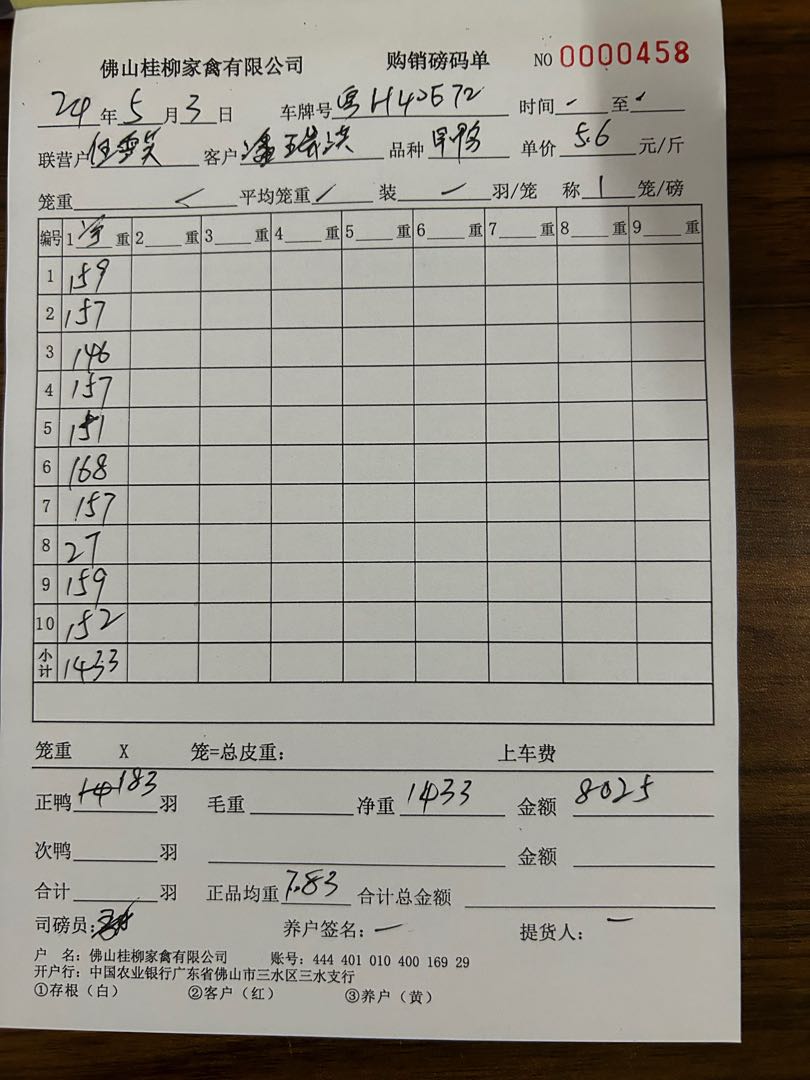 佛山桂柳家禽有限公司 购销磅码单 NO 0000458
24年5月3日 车牌号 粤H40572 时间 - 至
联营户 客户 品种 单价 5.6 元/斤
笼重 平均笼重 / 装 一 羽/笼 称 1 笼/磅
编号 1 净 重 2 重 3 重 4 重 5 重 6 重 7 重 8 重 9 重
1 159
2 157
3 146
4 157
5 151
6 168
7 157
8 27
9 159
10 152
小计 1433
笼重 X 笼=总皮重: 上车费
正鸭 183 羽 毛重 净重 1433 金额 8025
次鸭 羽 金额
合计 羽 正品均重 7.83 合计总金额
司磅员: 养户签名: 一 提货人: 一
户 名: 佛山桂柳家禽有限公司 账号: 444 401 010 400 169 29
开户行: 中国农业银行广东省佛山市三水区三水支行
①存根（白） ②客户（红） ③养户（黄）